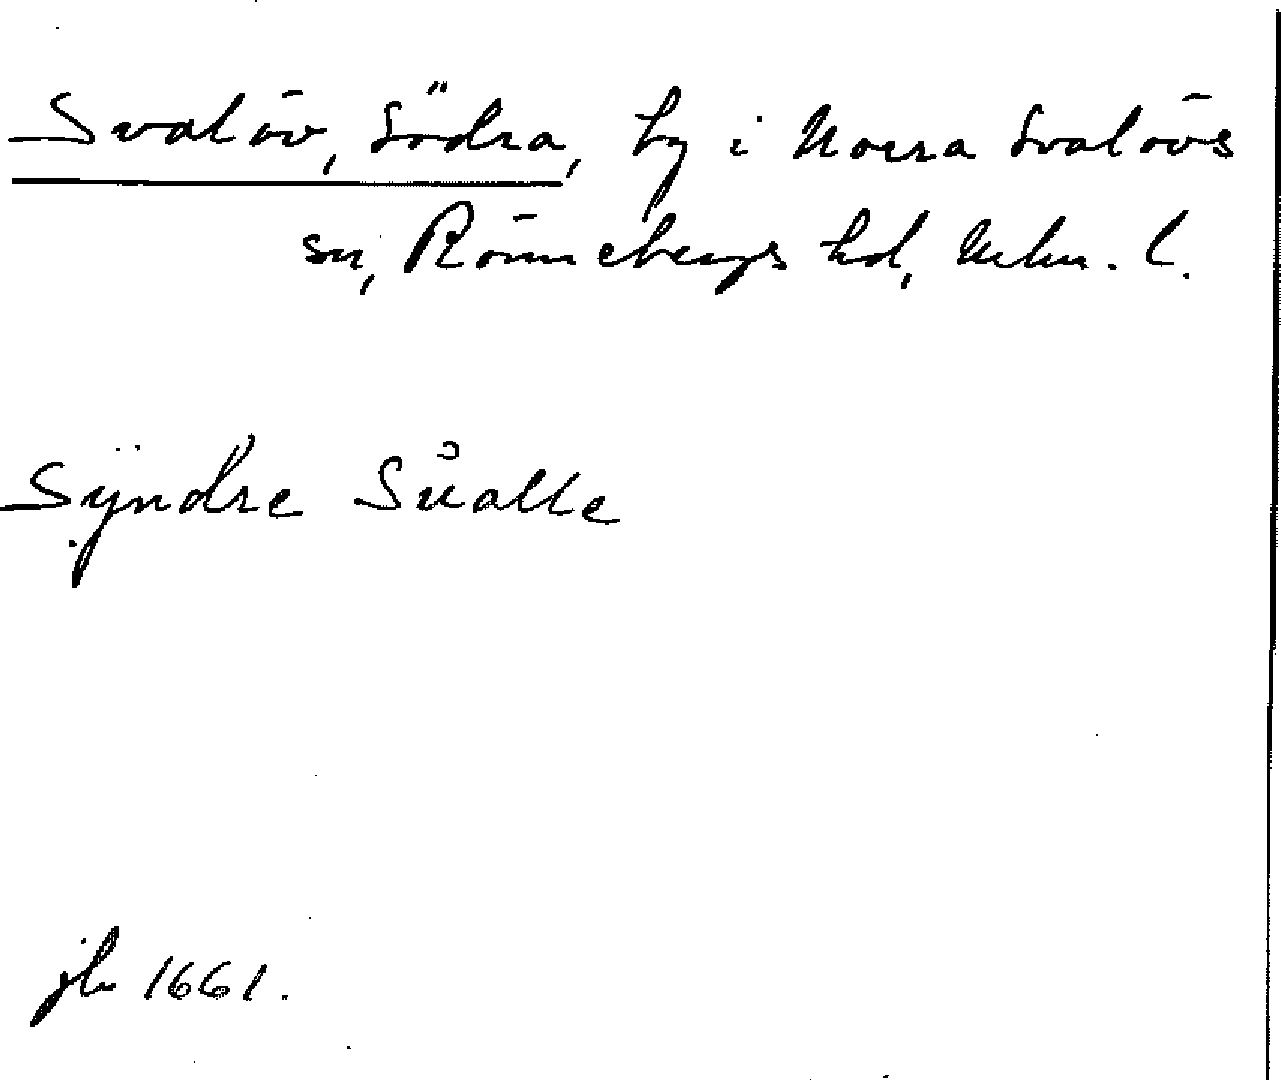 Svalöv, Södra, by i Norra Svalövs
sn, Rönnebergs hd, Mlm. l.
Sÿndre Sůalle
jb 1661.